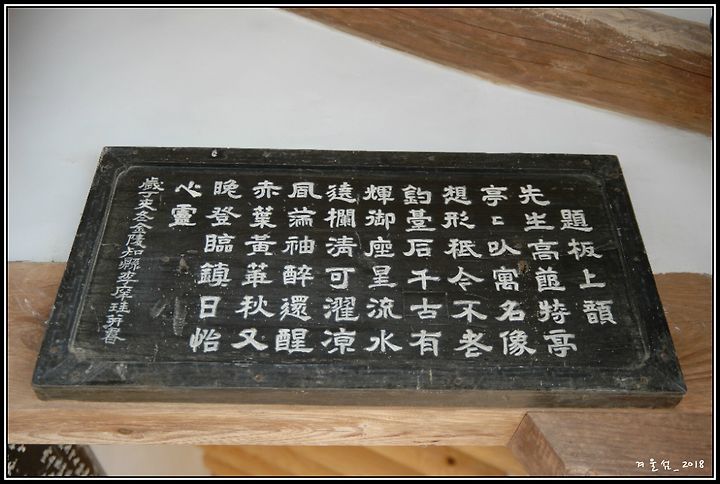 題板上韻
先生高蹈特亭
亭〻㕥寓名像
想形祗今不老
釣臺石千古有
輝御座星流水
遶欄淸可濯凉
風滿袖醉還醒
赤葉黃華秋又
晩登臨鎭日怡
心靈
歲丁亥冬金陵知縣李珪幷書
겨울섬_2018